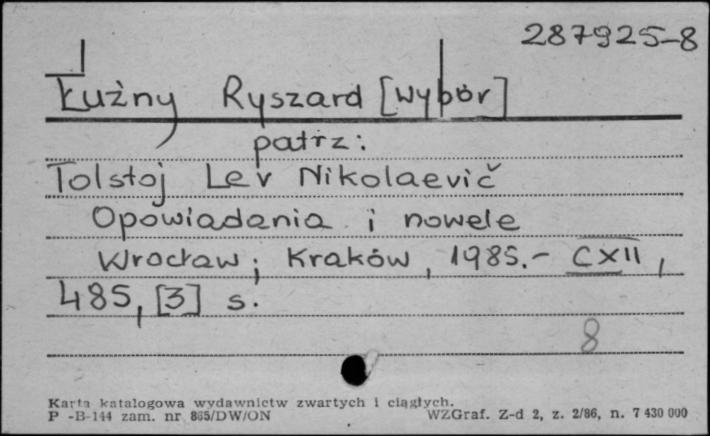 287925-8
Łużny Ryszard [wybór]
patrz:
Tolstoj Lev Nikolaevič
Opowiadania i nowele
Wrocław; Kraków, 1985.- CXII,
485, [3] s.
8
Karta katalogowa wydawnictw zwartych i ciągłych.
P -B-144 zam. nr 865/DW/ON WZGraf. Z-d 2, z. 2/86, n. 7 430 000